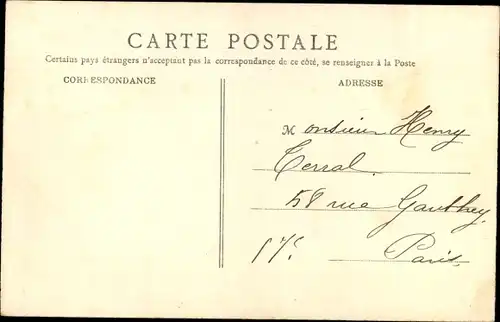 CARTE POSTALE
Certains pays étrangers n'acceptant pas la correspondance de ce côté, se renseigner à la Poste
CORRESPONDANCE
ADRESSE
Monsieur Henry
Terral.
58 rue Gauthey.
17e Paris